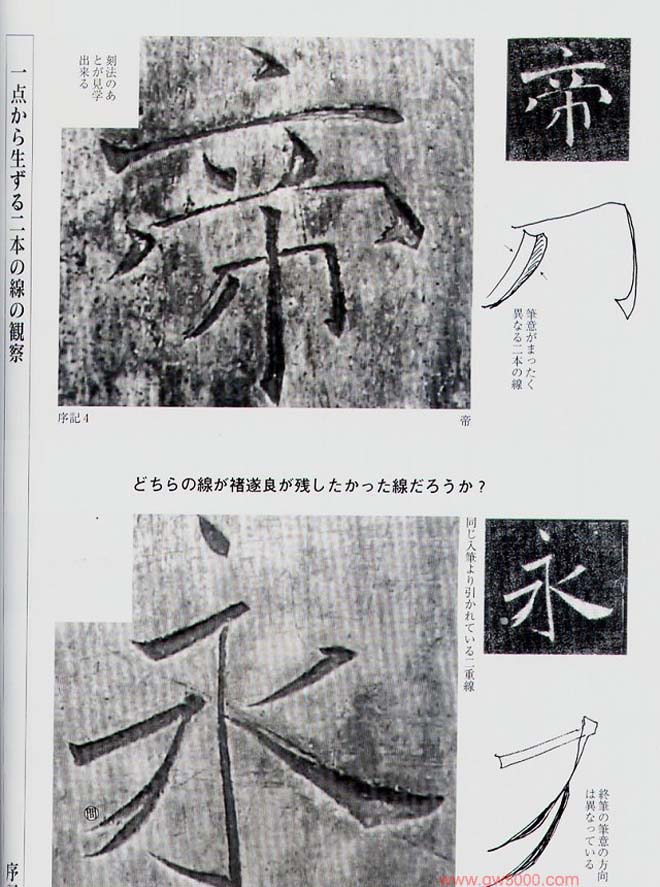 一点から生ずる二本の線の観察
刻法のあ
とが見学
出来る
帝
帝
筆意がまったく
異なる二本の線
序記4
帝
どちらの線が褚遂良が残したかった線だろうか?
同じ入筆より引かれている二重線
永
永
終筆の筆意の方向
は異なっている
www.gw5000.com